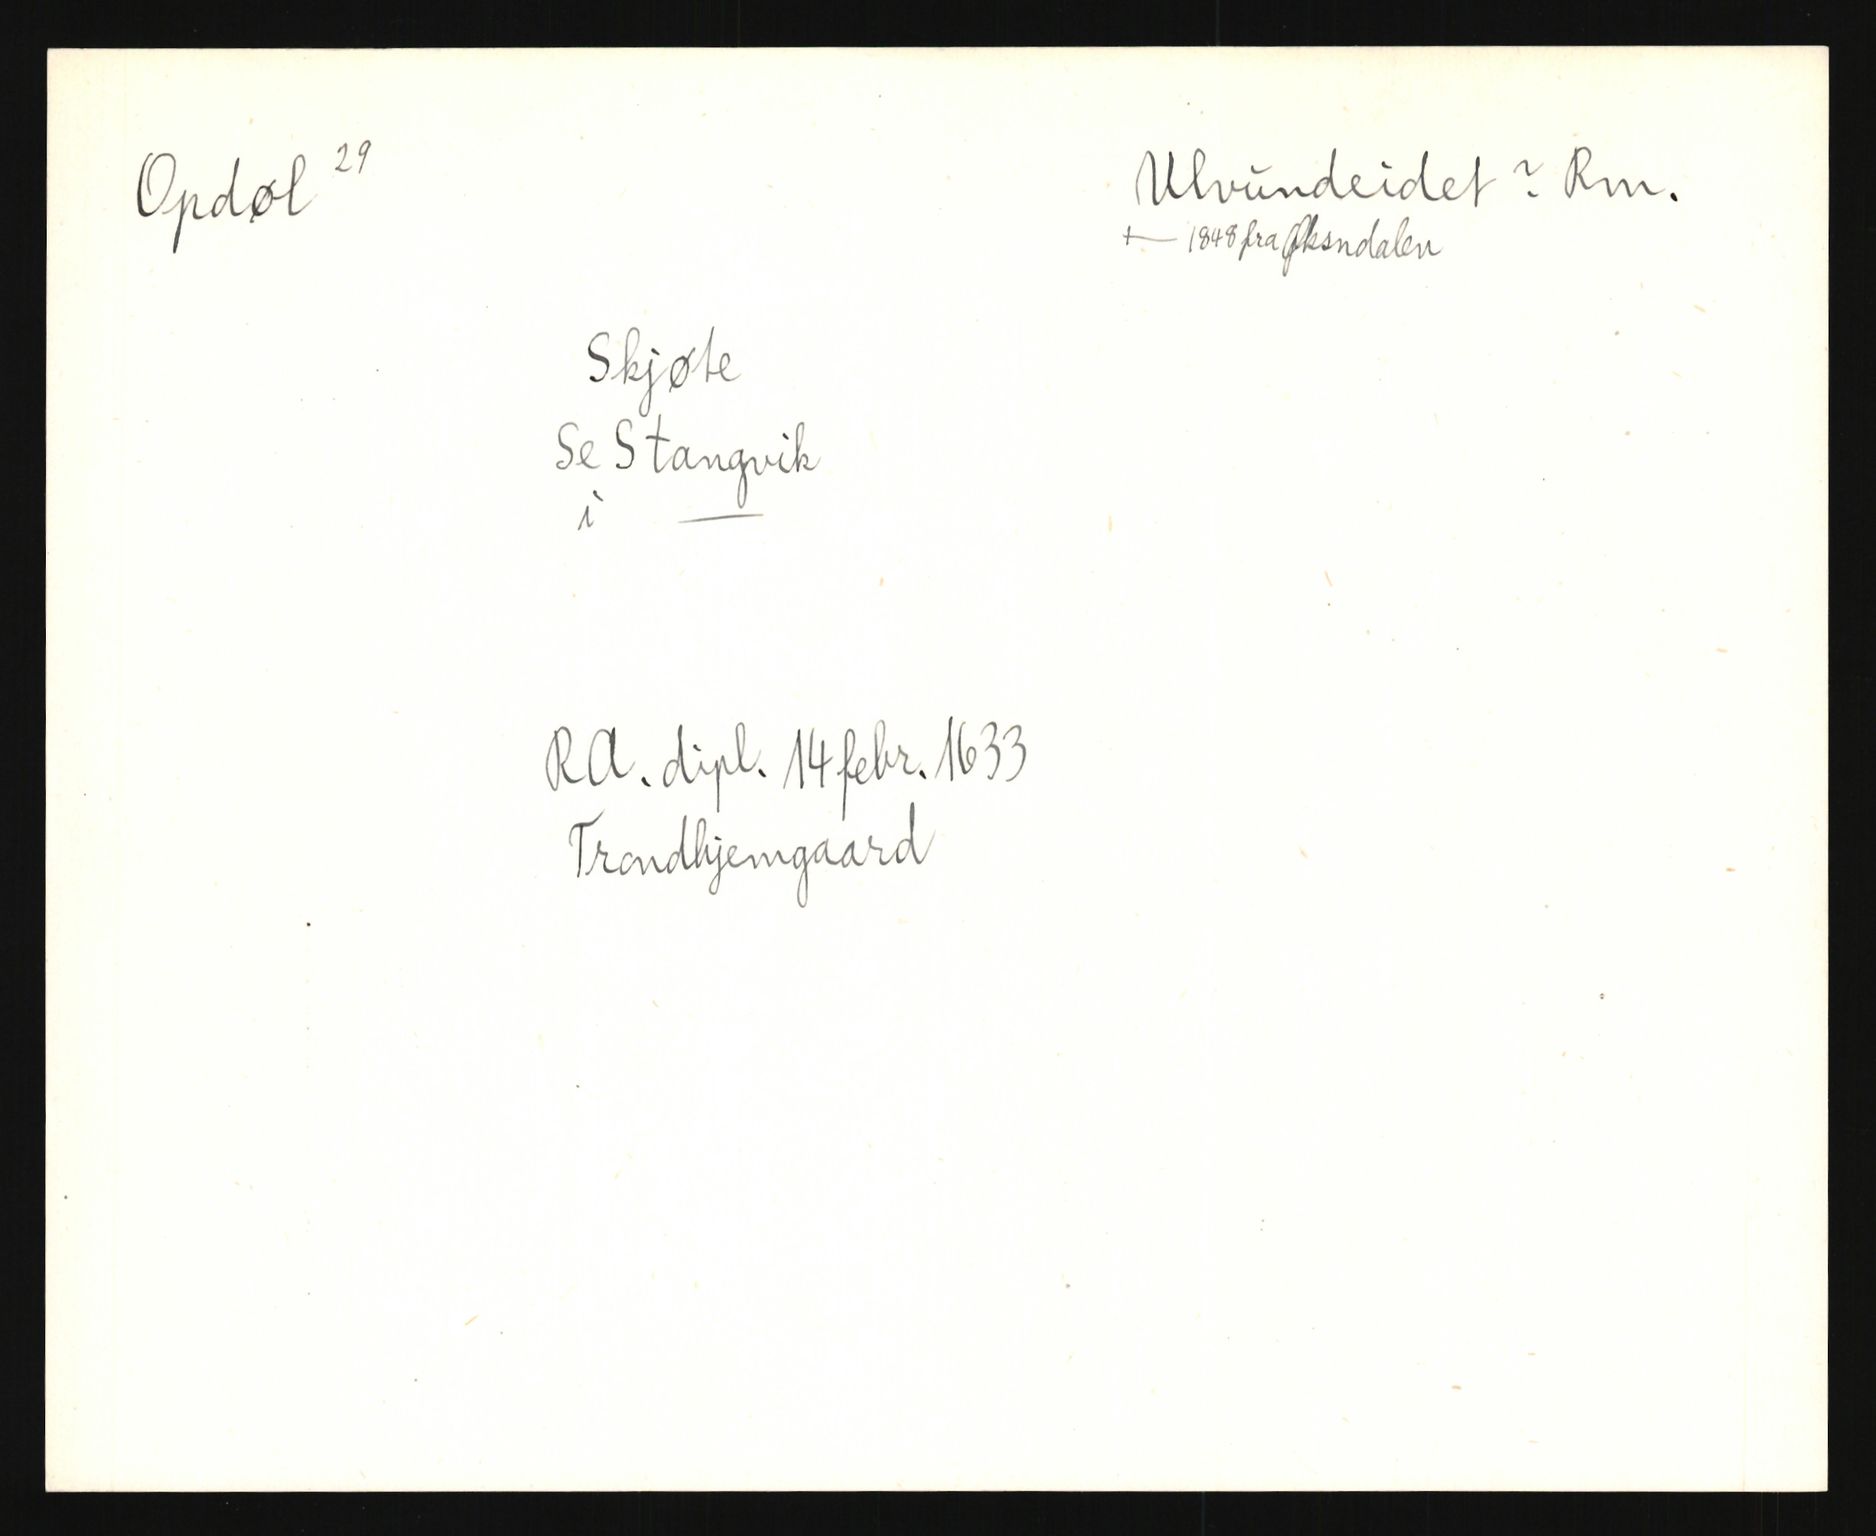 Opdøl 29
Ulvundeidet ? Rm.
+— 1848 fra Øksndalen
Skjøte
Se Stangvik
i —
RA. dipl. 14 febr. 1633
Trondhjemgaard